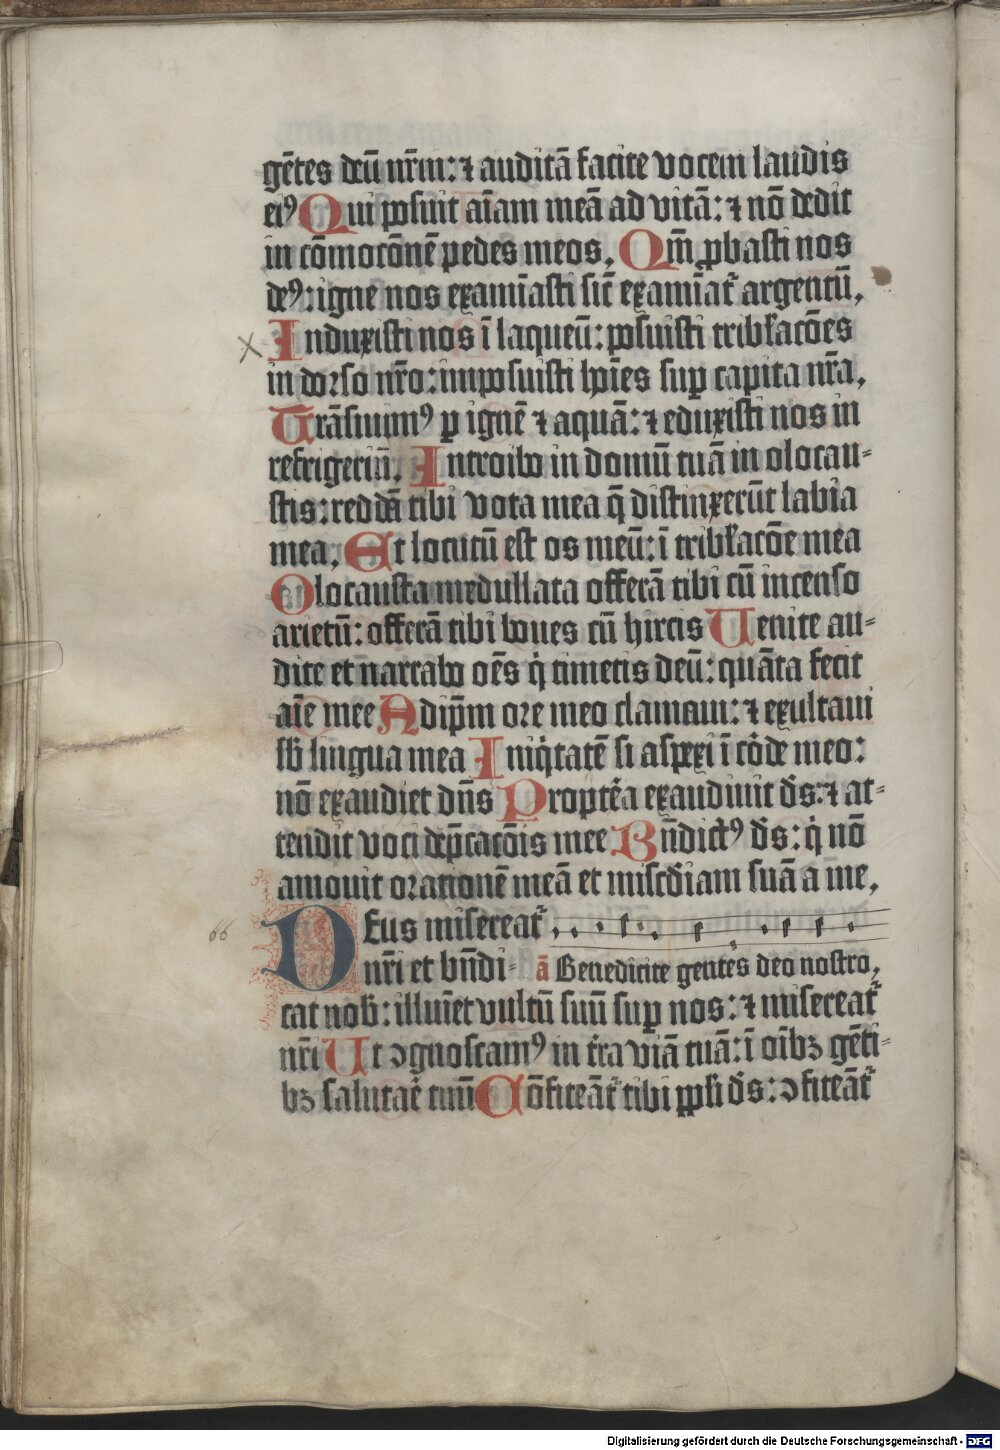 gētes deū nr̄m: ⁊ auditā facite vocem laudis
eiꝰ Qui posuit aīam meā ad vitā: ⁊ nō dedit
in cōmotōnē pedes meos, Qm̄ ꝓbasti nos
deꝰ: igne nos examīasti sic̄ examīat᷑ argentū,
Induxisti nos ī laqueū: posuisti tribl̄acōes
in dorso nr̄o: imposuisti hoīes suꝑ capita nr̄a,
Trāsiuimꝰ ꝑ ignē ⁊ aquā: ⁊ eduxisti nos in
refrigeriū, Introibo in domū tuā in olocau-
stis: reddā tibi vota mea q̄ distinxerūt labia
mea, Et locutū est os meū: ī tribl̄acōe mea
Olocausta medullata offerā tibi cū incenso
arietū: offerā tibi boues cū hircis Uenite au-
dite et narrabo oēs q̇ timetis deū: quāta fecit
aīe mee Ad ip̄m ore meo clamaui: ⁊ exultaui
sb̄ lingua mea Iniq̇tatē si aspexi ī corde meo:
nō exaudiet dn̄s Propt̄ea exaudiuit ds̄: ⁊ at-
tendit voci dep̄catōis mee Bn̄dict̄ꝰ ds̄: q̇ nō
amouit orationē meā et miscd̄iam suā a me,
66 Deus misereat᷑
nr̄i et bn̄di- ā Benedicite gentes deo nostro,
cat nob̄: illuīet vultū suū suꝑ nos: ⁊ misereat᷑
nr̄i Ut ↄgnoscamꝰ in t̄ra viā tuā: ī oīb⁊ gēti-
b⁊ salutar̄e tuū Cōfiteāt᷑ tibi ppl̄i ds̄: ↄfiteāt᷑
Digitalisierung gefördert durch die Deutsche Forschungsgemeinschaft - DFG